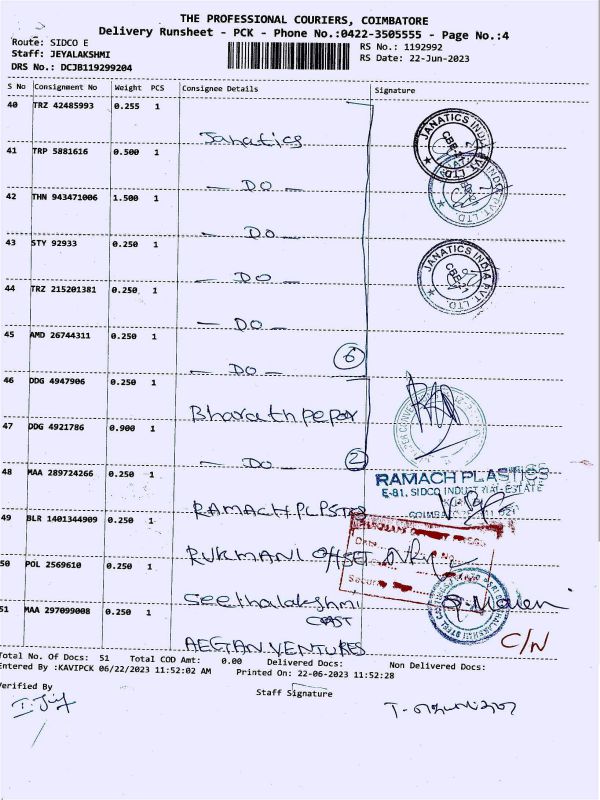 THE PROFESSIONAL COURIERS, COIMBATORE
Delivery Runsheet - PCK - Phone No.:0422-3505555 - Page No.:4
Route: SIDCO E
Staff: JEYALAKSHMI
DRS No.: DCJB119299204
RS No.: 1192992
RS Date: 22-Jun-2023
S No Consignment No Weight PCS Consignee Details Signature
40 TRZ 42485993 0.255 1
Janatics
JANATICS INDIA PVT. LTD.
41 TRP 5881616 0.500 1
— DO —
42 THN 943471006 1.500 1
— DO —
43 STY 92933 0.250 1
— DO —
JANATICS INDIA PVT. LTD.
44 TRZ 215201381 0.250 1
— DO —
45 AMD 26744311 0.250 1
— DO — 6
46 DDG 4947906 0.250 1
Bharath peper
47 DDG 4921786 0.900 1
— DO — 2
48 MAA 289724266 0.250 1
RAMACH PLASTICS
E-81, SIDCO INDUSTRIAL ESTATE
49 BLR 1401344909 0.250 1
RUKMANI OFFSET
50 POL 2569610 0.250 1
Seethalakshmi
CAST
51 MAA 297099008 0.250 1
AEGAN VENTURES
C/N
Total No. Of Docs: 51 Total COD Amt: 0.00 Delivered Docs: Non Delivered Docs:
Entered By :KAVIPCK 06/22/2023 11:52:02 AM Printed On: 22-06-2023 11:52:28
Verified By
Staff Signature